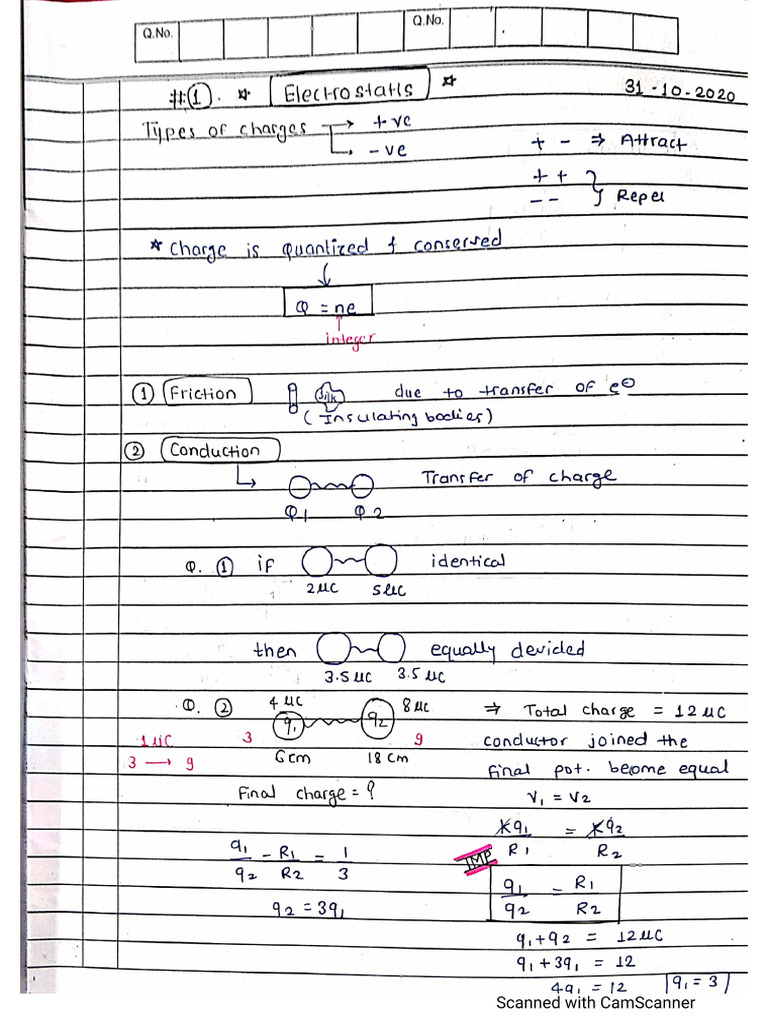 Q.No. Q.No.
#① . * Electrostatis * 31-10-2020
Types of charges → +ve
→ -ve
+ - ⇒ Attract
+ +
- - } Repel
* Charge is Quantized & conserved
↓
Q = ne
↑
integer
① Friction silk due to transfer of e⊖
(Insulating bodies)
② Conduction
→ Transfer of charge
Q1 Q2
Q. ① if identical
2μC 5μC
then equally devided
3.5μC 3.5μC
Q. ② 4μC q1 q2 8μC ⇒ Total charge = 12μC
1μC 3 9 conductor joined the
3 → 9 6cm 18cm final pot. become equal
Final charge = ? V1 = V2
Kq1/R1 = Kq2/R2
q1/q2 - R1/R2 = 1/3
IMP q1/q2 = R1/R2
q2 = 3q1
q1+q2 = 12μC
q1+3q1 = 12
4q1 = 12 q1 = 3
Scanned with CamScanner